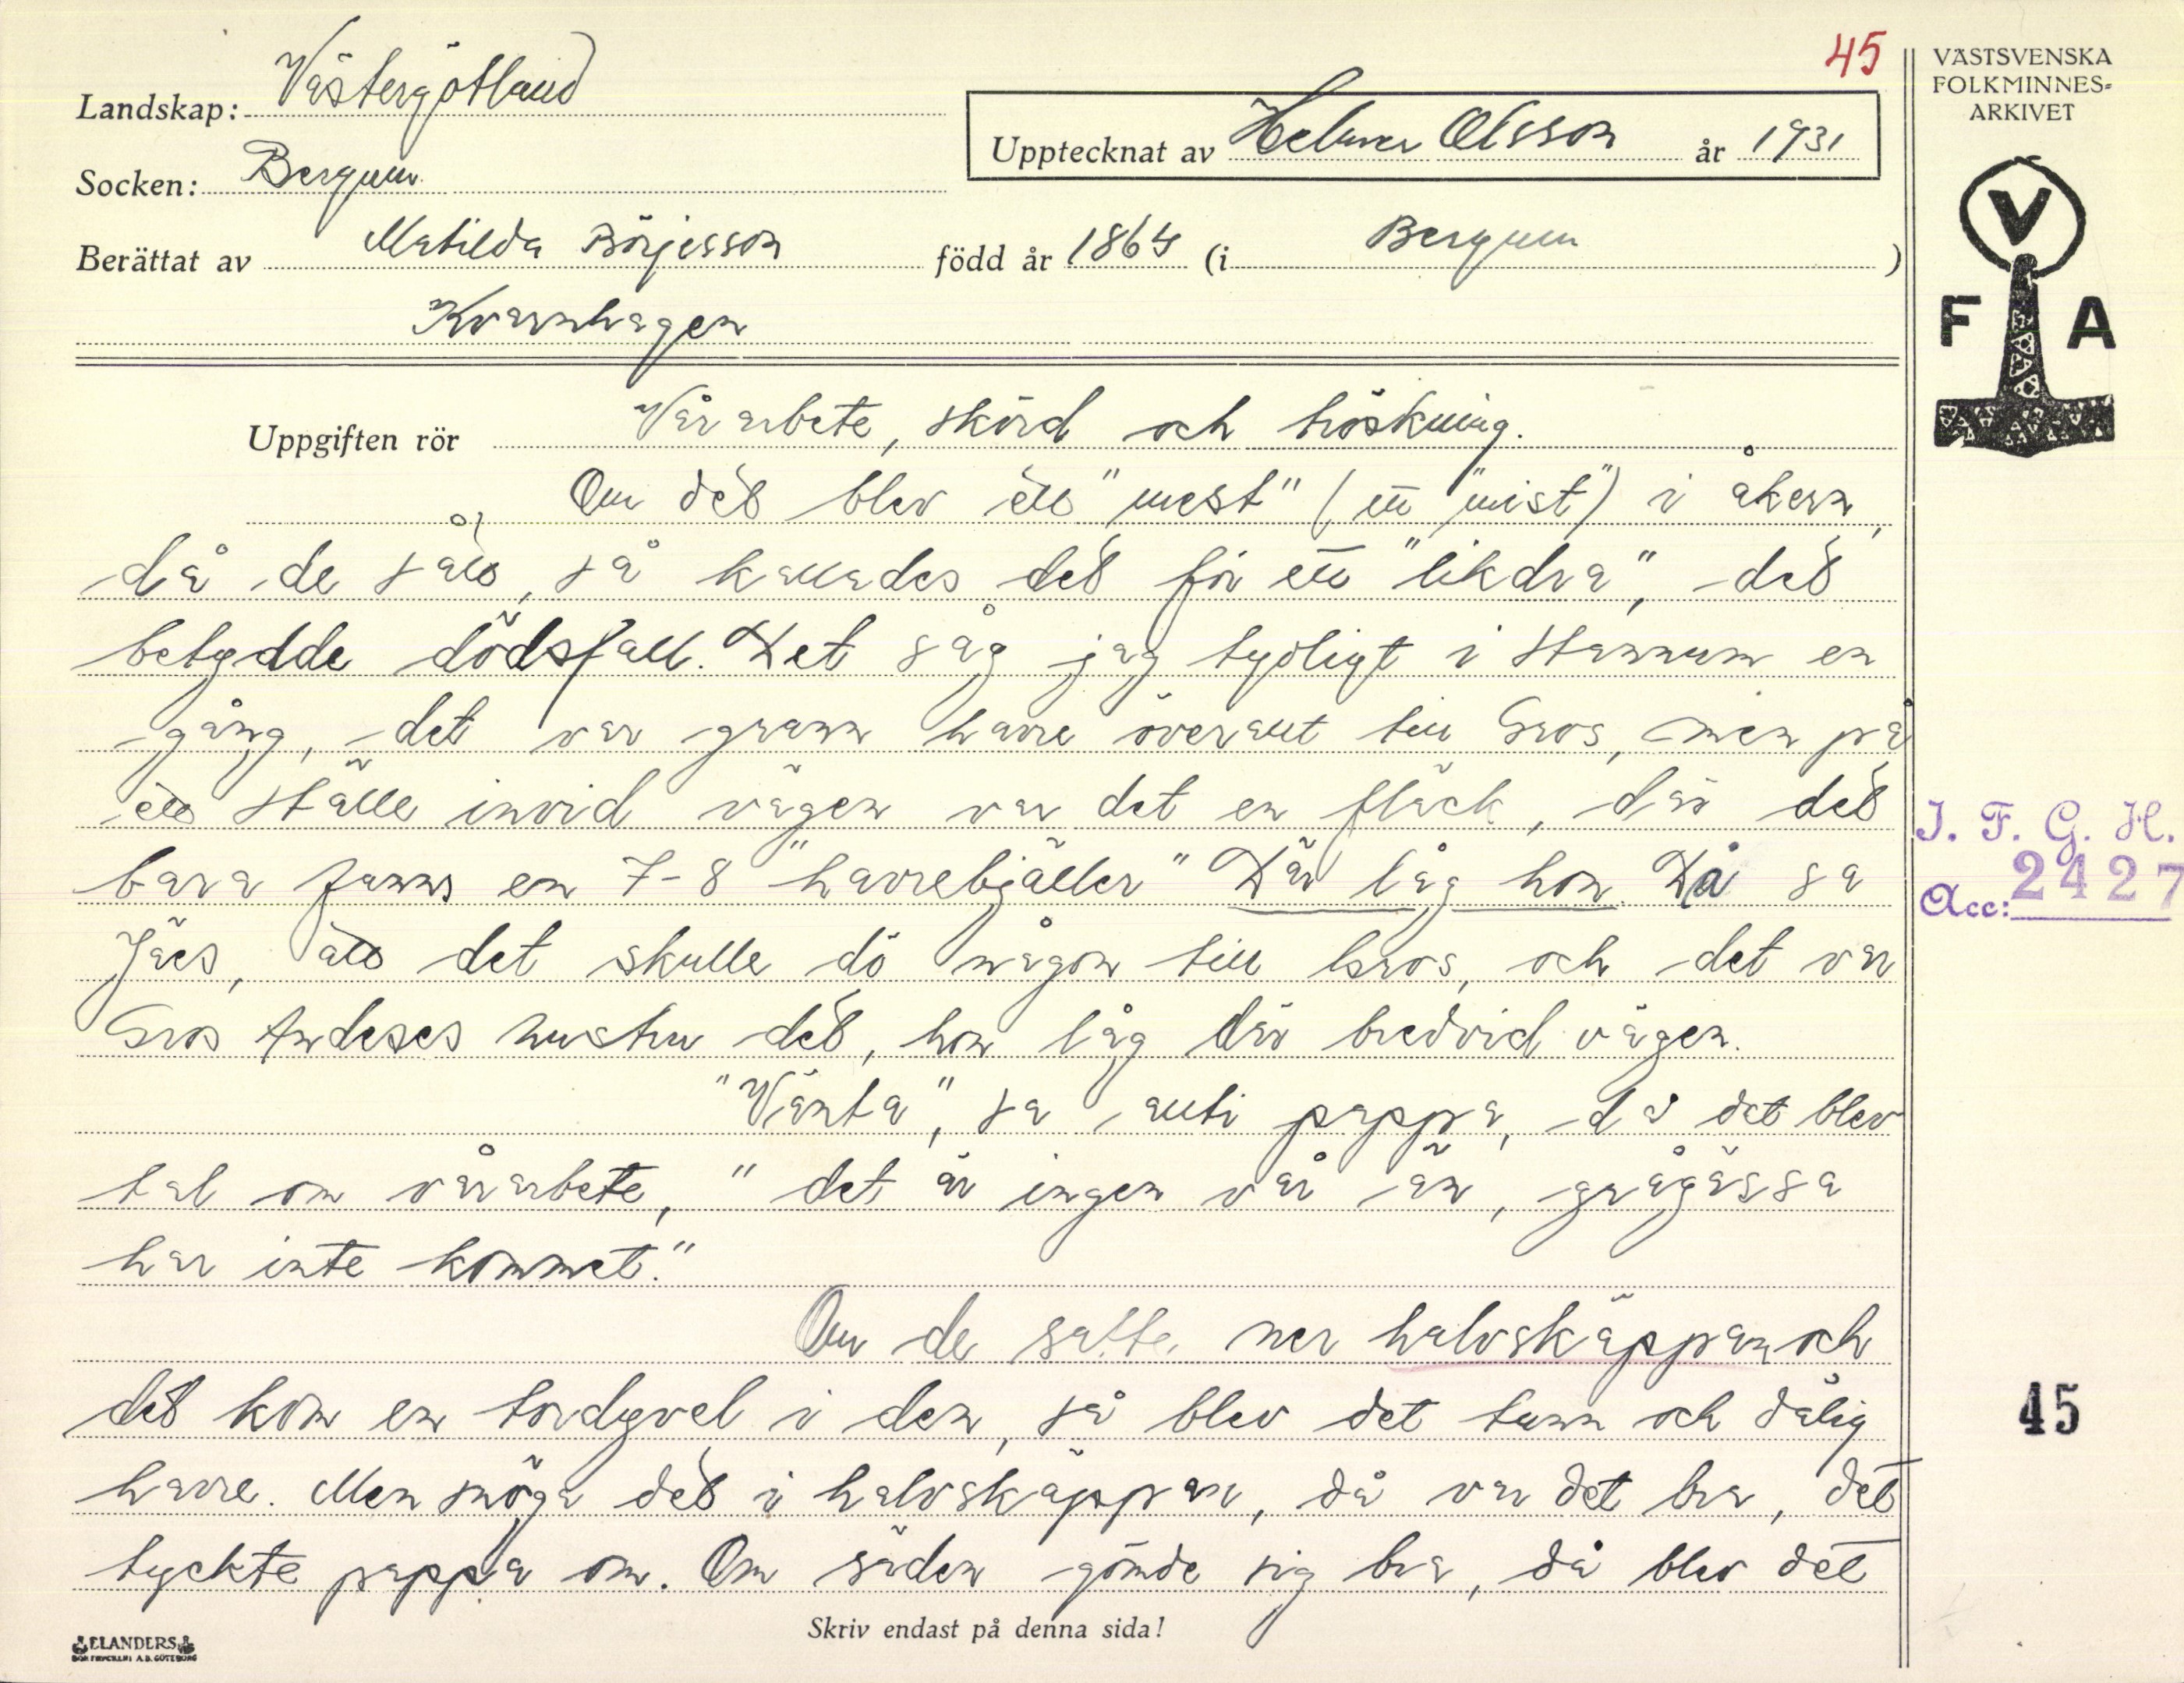 45
VÄSTSVENSKA
FOLKMINNES-
ARKIVET
Landskap: Västergötland
Upptecknat av Helmer Olsson år 1931
Socken: Bergum
Berättat av Matilda Börjesson född år 1864 (i Bergum )
Kvarnhagen
V
F A
Uppgiften rör Vårarbete, skörd och tröskning.
Om det blev ett "mest" (en "mist") i åkern,
då de sått, så kallades det för ett "likdra", det
betydde dödsfall. Det såg jag tydligt i Stannum en
gång, det var grann havre överallt till Gros, men på
ett ställe invid vägen var det en fläck, där det
bara fanns en 7-8 "havrebjäller" Där låg hon. Då sa
att det skulle dö någon till Gros, och det var
Gros Andeses hustru det, hon låg där bredvid vägen.
"Vänta", sa allti pappa, då det blev
tal om vårarbete, "det är ingen vår än, grågässa
har inte kommet."
Om de satte ner halvskäppan och
det kom en tordyvel i den, så blev det tunn och dålig
havre. Men snöga det i halvskäppan, då var det bra, det
tyckte pappa om. Om säden gömde sig bra, då blev det
I. F. G. H.
Acc: 2427
45
Skriv endast på denna sida!
ELANDERS
BOKTRYCKERI A.B. GÖTEBORG